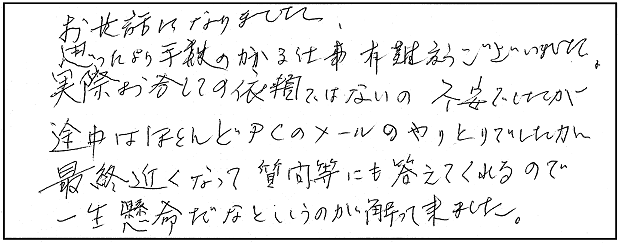 お世話になりました、
思ったより手数のかかる仕事 有難うございました。
実際お会しての依頼ではないの 不安でしたが
途中はほとんどPCのメールのやりとりでしたが
最終近くなって 質問等にも答えてくれるので
一生懸命だなというのが解って来ました。